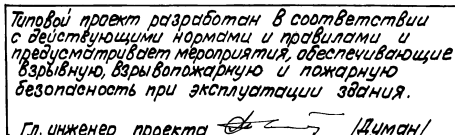 Типовой проект разработан в соответствии
с действующими нормами и правилами и
предусматривает мероприятия, обеспечивающие
взрывную, взрывопожарную и пожарную
безопасность при эксплуатации здания.
Гл. инженер проекта /Диман/